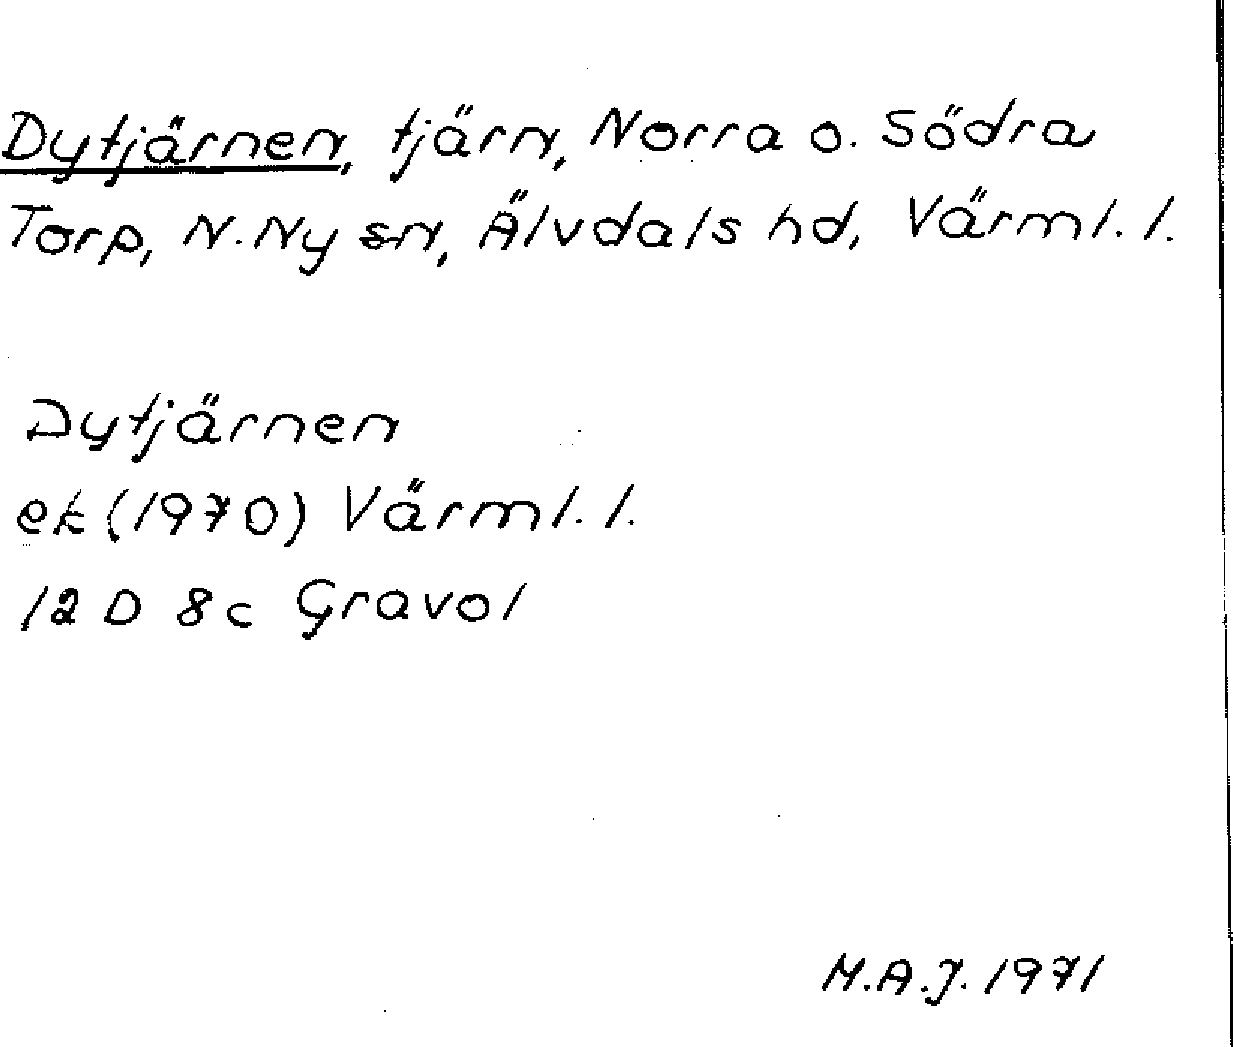 Dytjärnen, tjärn, Norra o. Södra
Torp, N. Ny sn, Älvdals hd, Värml. l.
Dytjärnen
ek (1970) Värml. l.
12 D 8c Gravol
M.A.J. 1971